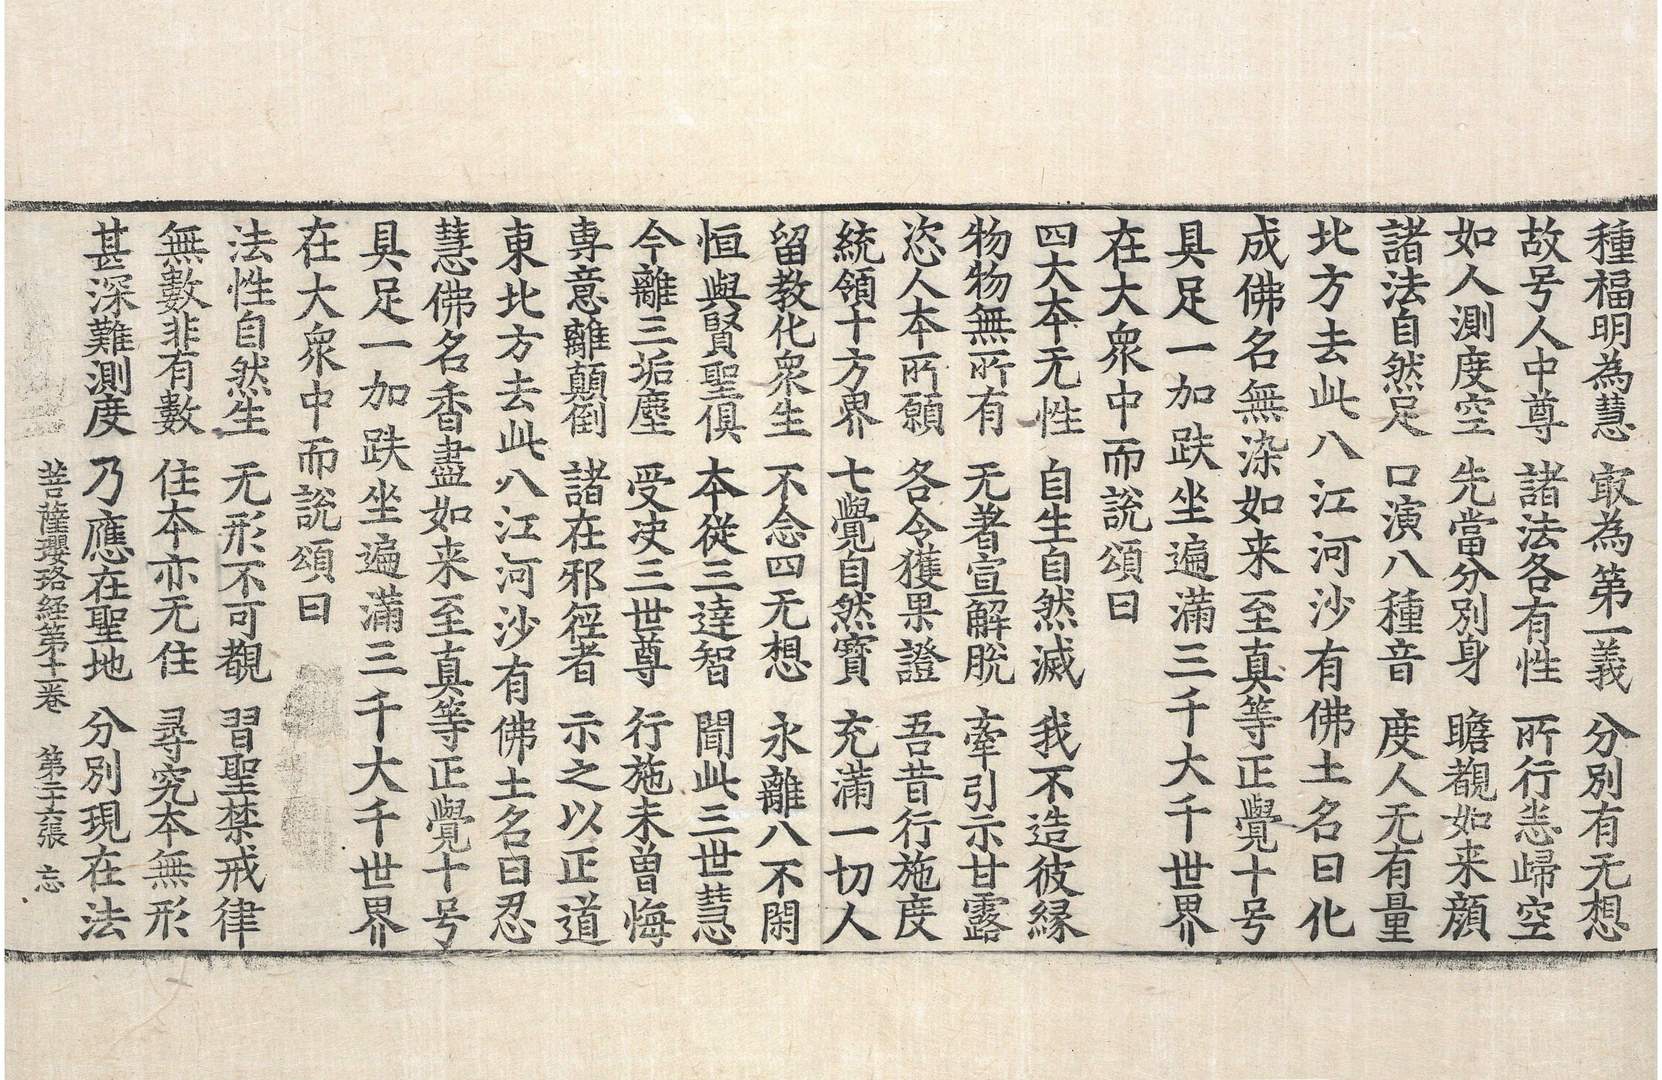 種福明為慧 㝡為第一義 分別有无想
故号人中尊 諸法各有性 所行恙歸空
如人測度空 先當分別身 瞻覩如来顔
諸法自然足 口演八種音 度人无有量
北方去此八江河沙有佛土名曰化
成佛名無染如来至真等正覺十号
具足一加趺坐遍滿三千大千世界
在大衆中而說頌曰
四大本无性 自生自然滅 我不造彼縁
物物無所有 无著宣解脫 牽引示甘露
恣人本所願 各令獲果證 吾昔行施度
統領十方界 七覺自然寶 充滿一切人
留教化衆生 不念四无想 永離八不閑
恒與賢聖俱 本從三達智 聞此三世慧
今離三垢塵 受决三世尊 行施未曽悔
專意離顛倒 諸在邪徑者 示之以正道
東北方去此八江河沙有佛土名曰忍
慧佛名香盡如来至真等正覺十号
具足一加趺坐遍滿三千大千世界
在大衆中而說頌曰
法性自然生 无形不可覩 習聖禁戒律
無數非有數 住本亦无住 尋究本無形
甚深難測度 乃應在聖地 分別現在法
菩薩瓔珞経第十一卷 第二十六張 忘